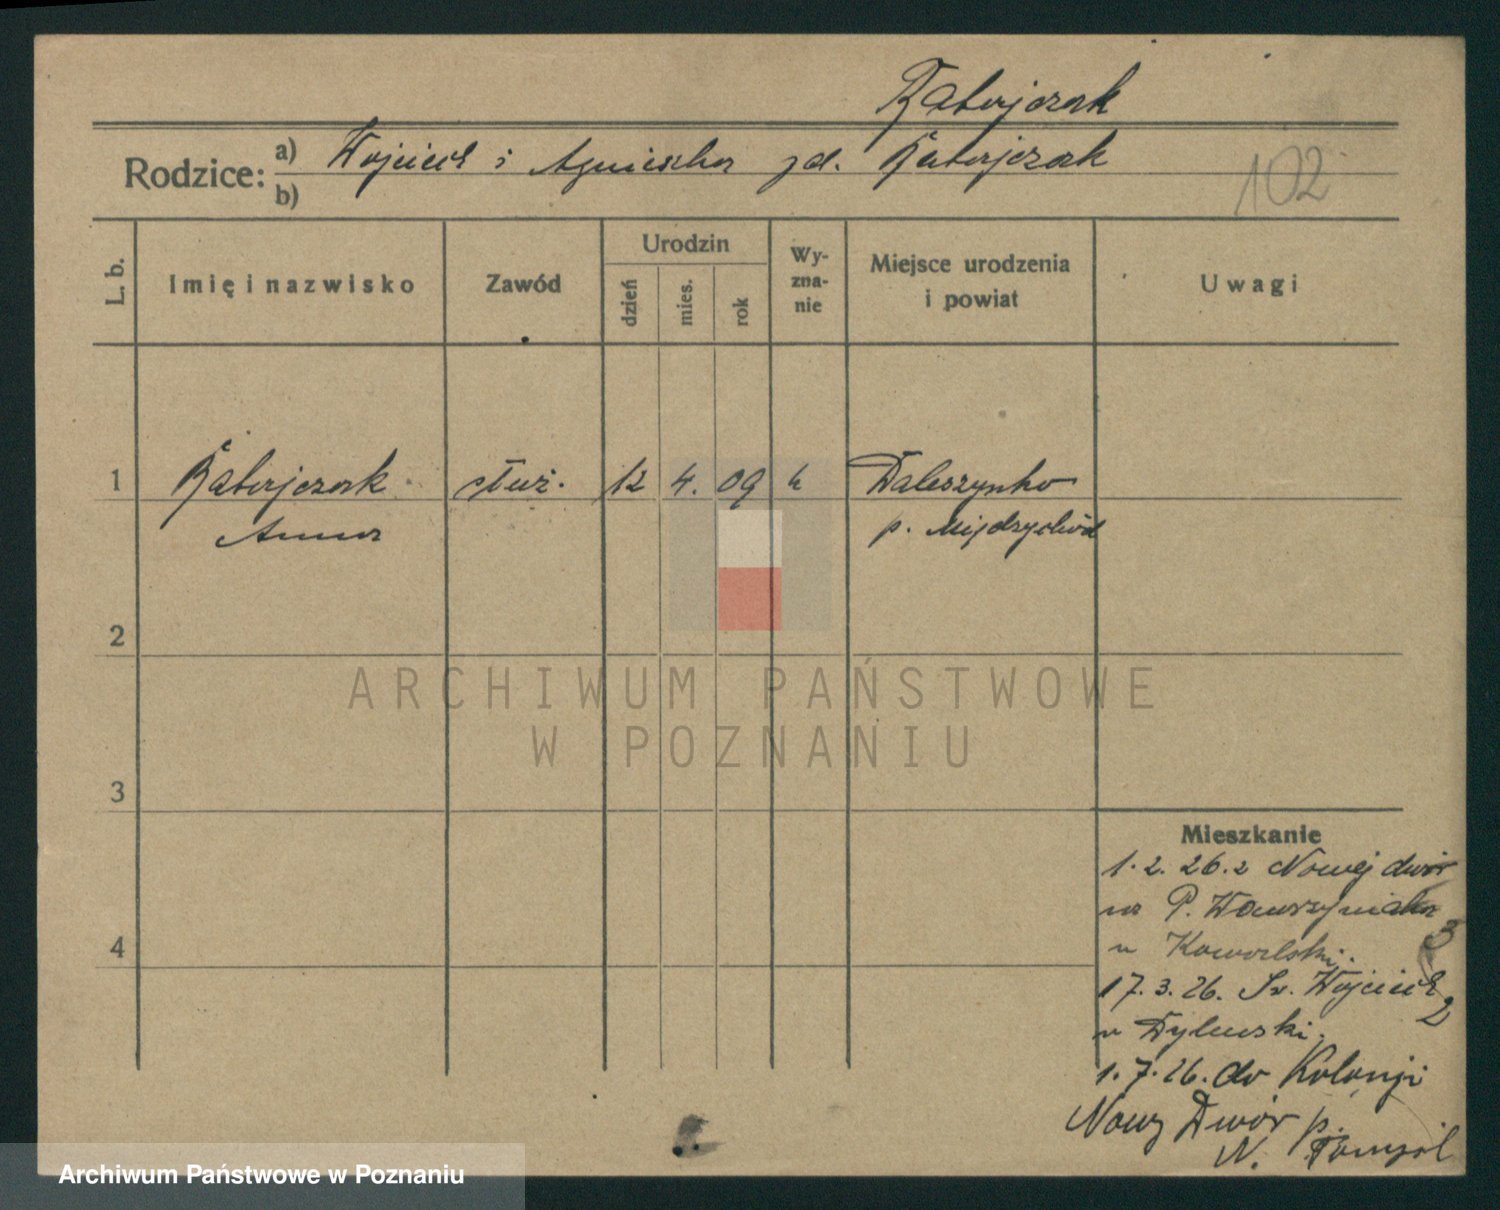 Ratajczak
Rodzice: a) Wojciech i Agnieszka zd. Ratajczak
b)
102
L. b. Imię i nazwisko Zawód Urodzin dzień mies. rok Wy-zna-nie Miejsce urodzenia i powiat Uwagi
1 Ratajczak służ. 12 4. 09 k Daleszynko
Anna p. Międzychód
2
ARCHIWUM PAŃSTWOWE
W POZNANIU
3
Mieszkanie
1.2.26. z Nowej dwór
na P. Wawrzyniaka 3
u Kowalski.
4
17.3.26. Św. Wojciech 2
u
1.7.26. do Kolonji
Nowy Dwór p.
N. Tomyśl
Archiwum Państwowe w Poznaniu